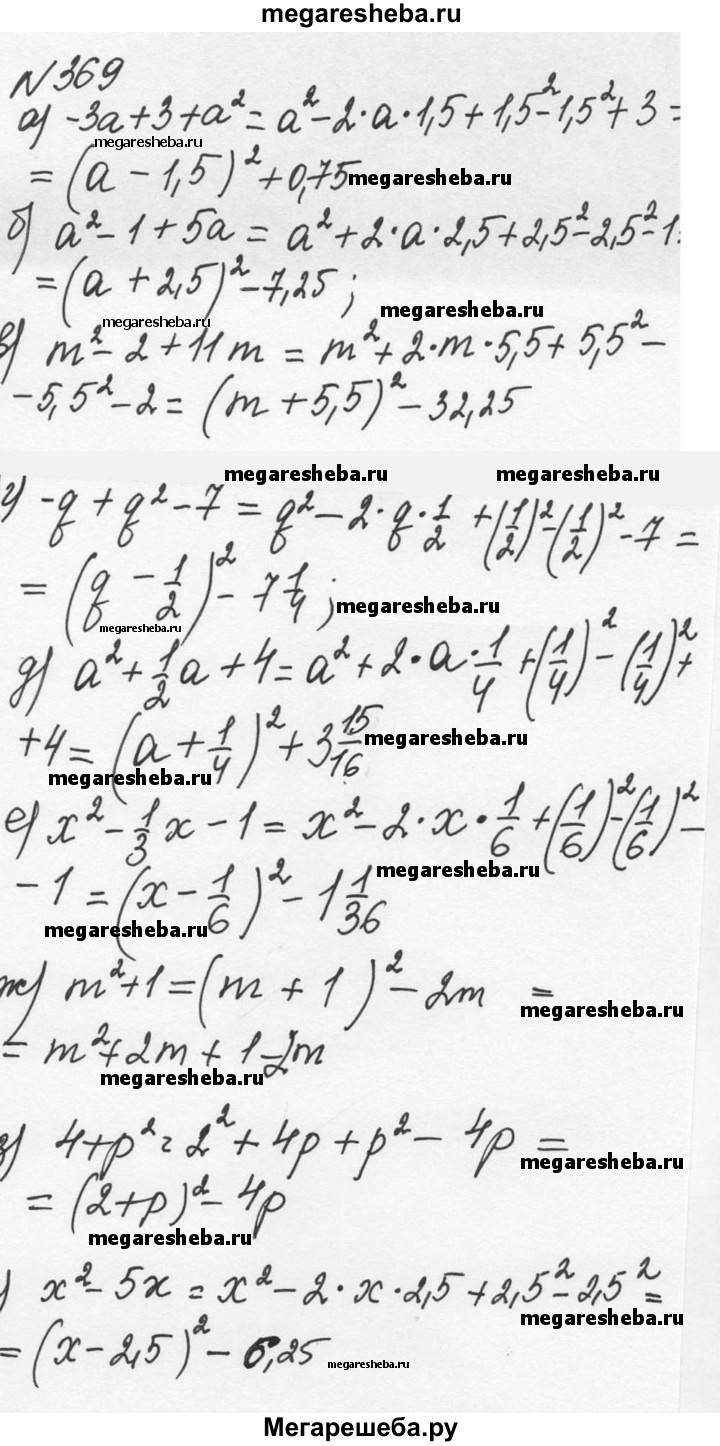 megaresheba.ru
№369
а) -3a+3+a² = a²-2·a·1,5+1,5²-1,5²+3=
megaresheba.ru
= (a-1,5)²+0,75
megaresheba.ru
б) a²-1+5a = a²+2·a·2,5+2,5²-2,5²-1=
= (a+2,5)²-7,25;
megaresheba.ru
megaresheba.ru
в) m²-2+11m = m²+2·m·5,5+5,5²-
-5,5²-2= (m+5,5)²-32,25
megaresheba.ru megaresheba.ru
г) -q+q²-7 = q²-2·q·1/2+(1/2)²-(1/2)²-7=
= (q-1/2)²-7 1/4;
megaresheba.ru
megaresheba.ru
д) a²+1/2a+4=a²+2·a·1/4+(1/4)²-(1/4)²+
+4=(a+1/4)²+3 15/16
megaresheba.ru
megaresheba.ru
е) x²-1/3x-1= x²-2·x·1/6+(1/6)²-(1/6)²-
-1=(x-1/6)²-1 1/36
megaresheba.ru
megaresheba.ru
ж) m²+1=(m+1)²-2m =
megaresheba.ru
= m²+2m+1-2m
megaresheba.ru
з) 4+p²=2²+4p+p²-4p=
megaresheba.ru
= (2+p)²-4p
megaresheba.ru
) x²-5x = x²-2·x·2,5+2,5²-2,5²=
megaresheba.ru
= (x-2,5)²-6,25
megaresheba.ru
Мегарешеба.ру